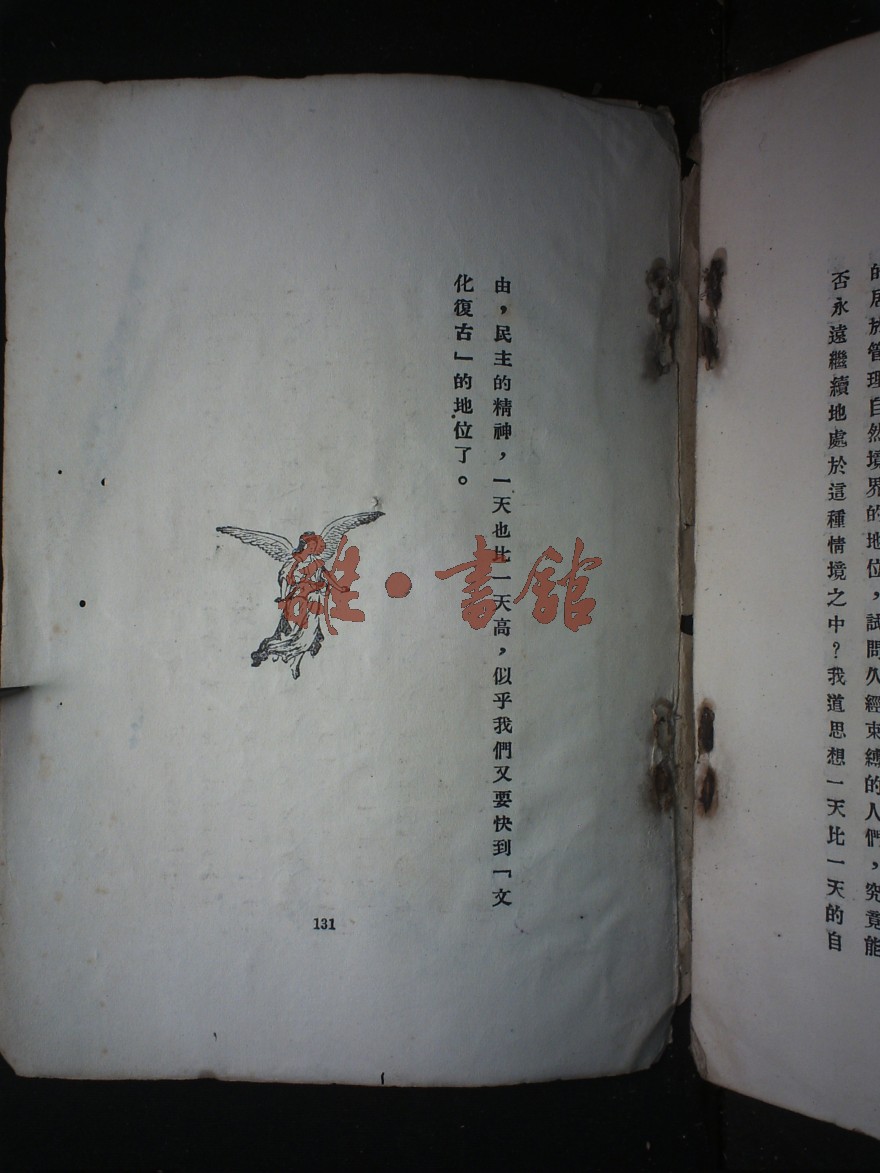 的居於管理自然境界的地位，試問久經束縛的人們，究竟能
否永遠繼續地處於這種情境之中？我道思想一天比一天的自
由，民主的精神，一天也比一天高，似乎我們又要快到「文
化復古」的地位了。
雜·書館
131